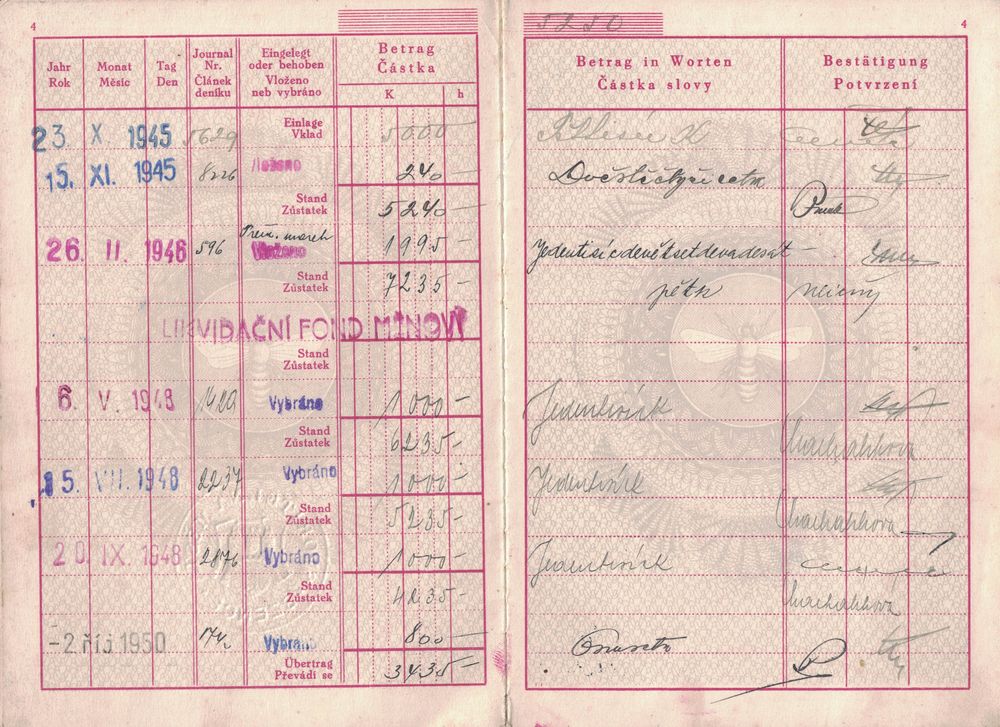 4
Jahr Rok
Monat Měsíc
Tag Den
Journal Nr. Článek deníku
Eingelegt oder behoben Vloženo neb vybráno
Betrag Částka
K h
23. X 1945 5629 Einlage Vklad 5000
15. XI. 1945 8226 Vloženo 240 -
Stand Zůstatek 5240 -
26. II. 1946 596 Prém. Vloženo 1995 -
Stand Zůstatek 7235 -
LIKVIDAČNÍ FOND MĚNOVÝ
Stand Zůstatek
6. V. 1948 Vybráno 1000 -
Stand Zůstatek 6235 -
15. VII. 1948 2237 Vybráno 1000 -
Stand Zůstatek 5235 -
20. IX. 1948 2876 Vybráno 1000 -
Stand Zůstatek 4235 -
-2. říj 1950 Vybráno 800 -
Übertrag Převádí se 3435 -
5250
4
Betrag in Worten Částka slovy
Bestätigung Potvrzení
Jedentisícdevětsetdevadesát -
pět
Jedentisíc
Jedentisíc
Jedentisíc
Osmset